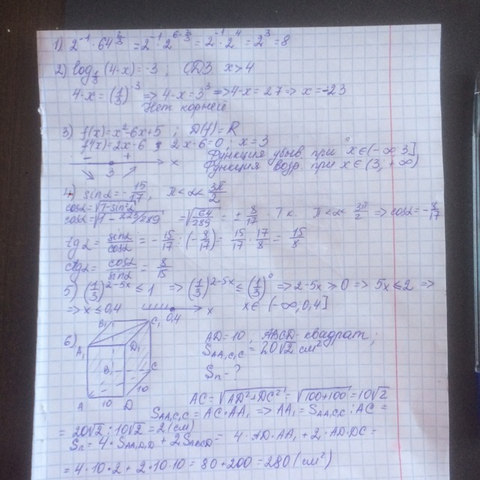 1) 2^-1 · 64^(4/3) = 2^-1 · 2^(6·4/3) = 2^-1 · 2^4 = 2^3 = 8
2) log_(1/3) (4-x) = -3, ОДЗ x > 4
4-x = (1/3)^-3 => 4-x = 3^3 => 4-x = 27 => x = -23
Нет корней
3) f(x) = x²-6x+5 ; D(f) = R
f'(x) = 2x-6 ; 2x-6=0, x=3
- + x
3
Функция убыв. при x∈(-∞ 3]
Функция возр. при x∈(3, +∞)
4) sin2 = -15/17, π<2<3π/2
cos2 = √1-sin²2
cos2 = √1-225/289 = √64/289 = ± 8/17 Т.к π<2<3π/2 => cos2 = -8/17
tg2 = sin2/cos2 = -15/17 · (-8/17) = 15/17 · 17/8 = 15/8
ctg2 = cos2/sin2 = 8/15
5) (1/3)^(2-5x) ≤ 1 => (1/3)^(2-5x) ≤ (1/3)^0 => 2-5x ≥ 0 => 5x ≤ 2 =>
=> x ≤ 0,4 0,4 x x∈(-∞, 0,4]
6) B₁ C₁ A₁ D₁ B C A 10 D 10
AD = 10, ABCD-квадрат;
S_AA₁C₁C = 20√2 см²
Sп - ?
AC = √AD²+DC² = √100+100 = 10√2
S_AA₁C₁C = AC · AA₁ => AA₁ = S_AA₁CC₁ : AC =
= 20√2 : 10√2 = 2 (см)
Sп = 4 · S_AA₁D₁D + 2S_ABCD = 4 · AD · AA₁ + 2 · AD · DC =
= 4 · 10 · 2 + 2 · 10 · 10 = 80 + 200 = 280 (см²)